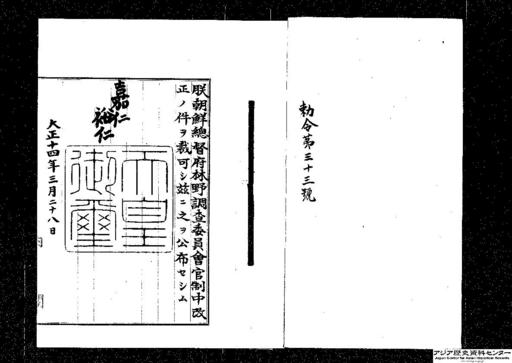 勅令第三十三號
朕朝鮮總督府林野調査委員會官制中改
正ノ件ヲ裁可シ茲ニ之ヲ公布セシム
嘉仁
裕仁
天皇
御璽
大正十四年三月二十八日
内閣
アジア歴史資料センター
Japan Center for Asian Historical Records